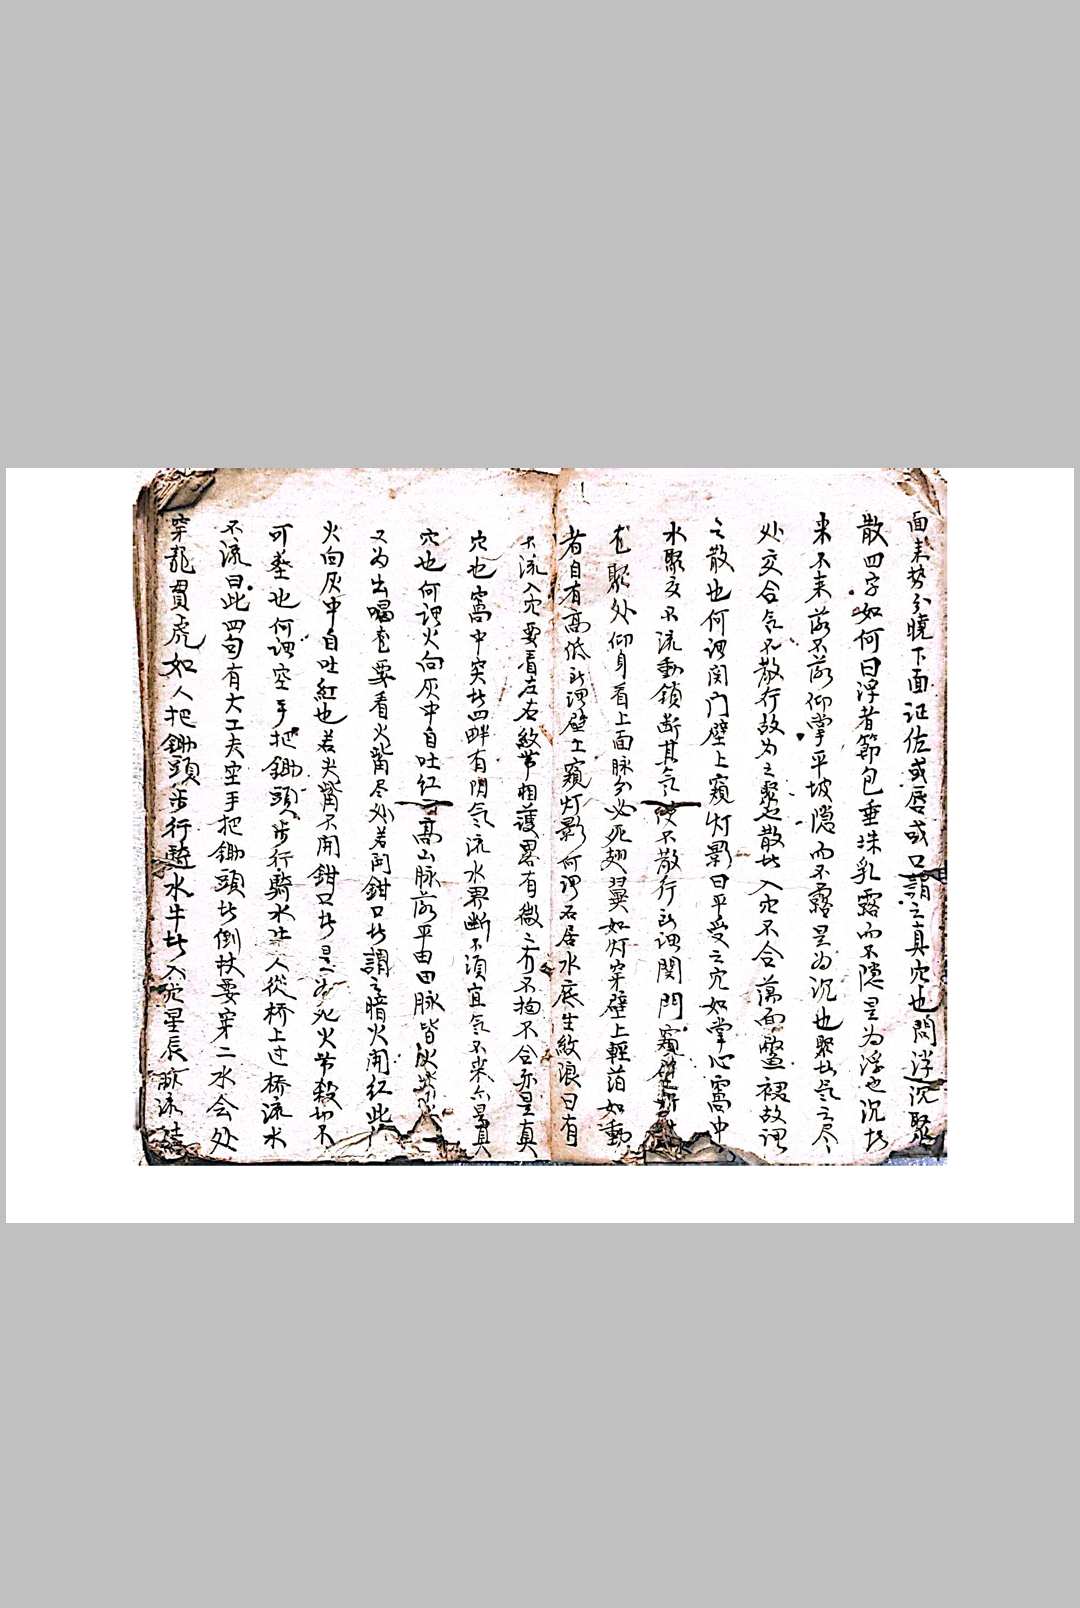 面来势分曉下面证佐或唇或口謂之真穴也問浮沉聚
散四字如何曰浮者節包垂珠乳露而不隐是为浮也沉者
来不来落不落仰掌平坡隐而不露是为沉也聚者气之尽
处交合气不散行故为之聚也散者入穴不合荡面裙故谓
之散也何谓閉门壁上窺灯影曰平受之穴如掌心窩中
水聚交不流動锁断其气使不散行所谓関門窺
聚处仰身看上面脉分必死翅翼如灯穿壁上輕泊如動
者自有高低所谓壁上窺灯影何谓石居水底生紋浪曰有
水流入穴要看左右紋带相護界有微之方不拘不合亦是真
穴也窩中突者四畔有閃气流水界断不須宜气不来亦是真
穴也何谓火向灰中自吐红曰高山脉落平由田脉皆
又为出唱 要看火嘴尽处若開鉗口者謂之暗火開红此
火向灰中自吐紅也若火嘴不開鉗口者是为死火节殺切不
可塟也何谓空手把鋤頭步行騎水牛人從桥上过桥流水
不流曰此四句有大工夫空手把鋤頭者倒杖要穿二水会处
穿龍貫虎如人把鋤頭步行騎水牛者入穴星辰脉流